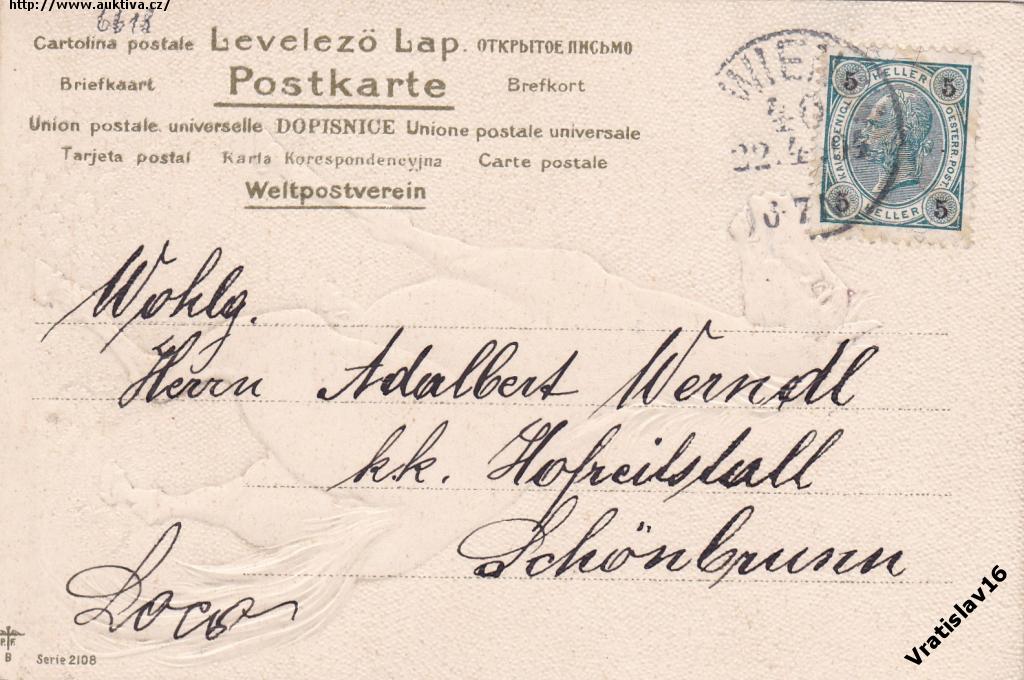 http://www.auktiva.cz/
6618
Cartolina postale Levelező Lap. ОТКРЫТОЕ ПИСЬМО
Briefkaart Postkarte Brefkort
Union postale universelle DOPISNICE Unione postale universale
Tarjeta postal Karta Korespondencyjna Carte postale
Weltpostverein
WIEN
22.4
5 HELLER 5
KAIS. KOENIGL. OESTERR. POST.
5 HELLER 5
Wohlg.
Herrn Adalbert Werndl
k.k. Hofreitstall
Schönbrunn
Loco
P.F.
B Serie 2108
Vratislav16